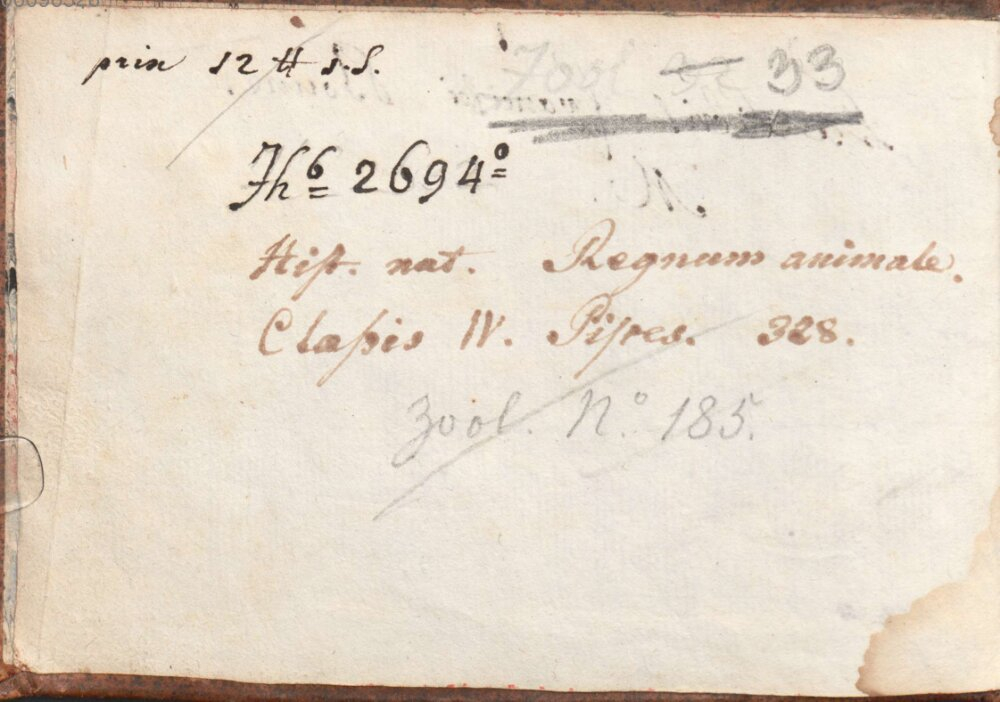 prix 12 ₶ s.s.
Zool 33
Th⁶ 2694°
Hist. nat. Regnum animale.
Classis IV. Pisces. 328.
Zool. N° 185.